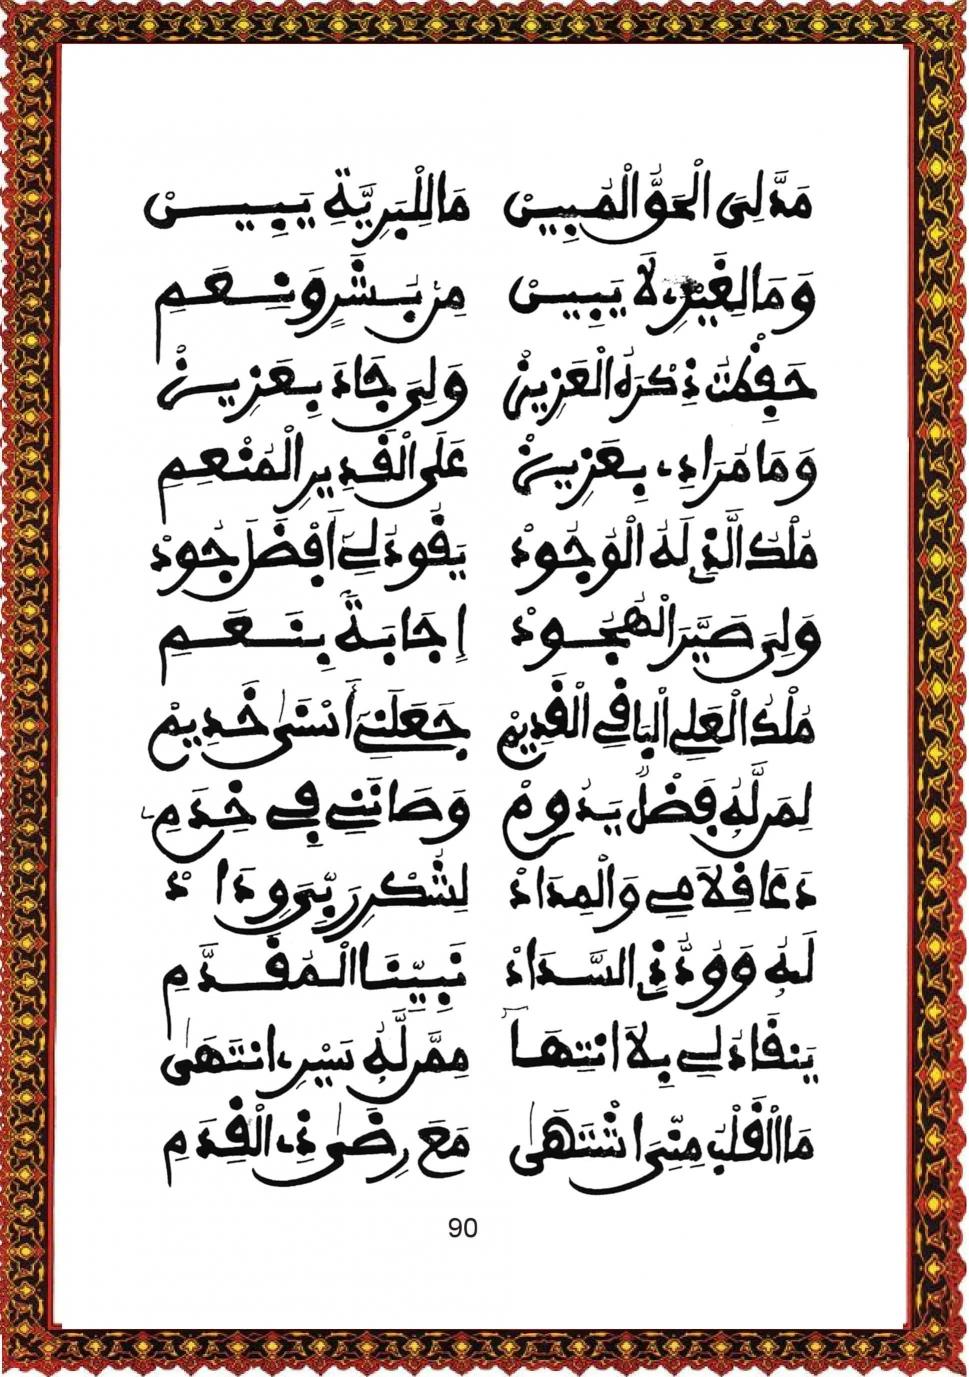 مَدَّ لِيَ الْحَقُّ الْمُبِينْ مَا لِلْبَرِيَّةِ يَبِينْ
وَمَا لِغَيْرِي لَا يَبِينْ مِنْ بَشَرٍ وَنِعَمِ
حَفِظْتُ ذِكْرَهُ الْعَزِيزْ وَلِيَ جَادَ بِعَزِيزْ
وَمَا مُرَادِي بِعَزِيزْ عَلَى الْقَدِيرِ الْمُنْعِمِ
مُلْكُ الَّذِي لَهُ الْوُجُودْ يَقُودُ لِي أَفْضَلَ جُودْ
وَلِيَ صَيَّرَ الْهُجُودْ إِجَابَةً بِنَعَمِ
مُلْكُ الْعَلِي الْبَاقِي الْقَدِيمْ جَعَلَنِي أَسْنَى خَدِيمْ
لِمَنْ لَهُ فَضْلٌ يَدُومْ وَصَانَنِي فِي خِدَمِ
دَعَا قِلَامِي وَالْمِدَادْ لِشُكْرِ رَبِّي وَوِدَادْ
لَهُ وَوُدُّ ذِي السَّدَادْ نَبِيِّنَا الْمُقَدَّمِ
يَنْقَادُ لِي بِلَا انْتِهَا مِمَّنْ لَهُ سَيْرِي انْتَهَى
مَا الْقَلْبُ مِنِّيَ اشْتَهَى مَعَ رِضَى ذِي الْقِدَمِ
90